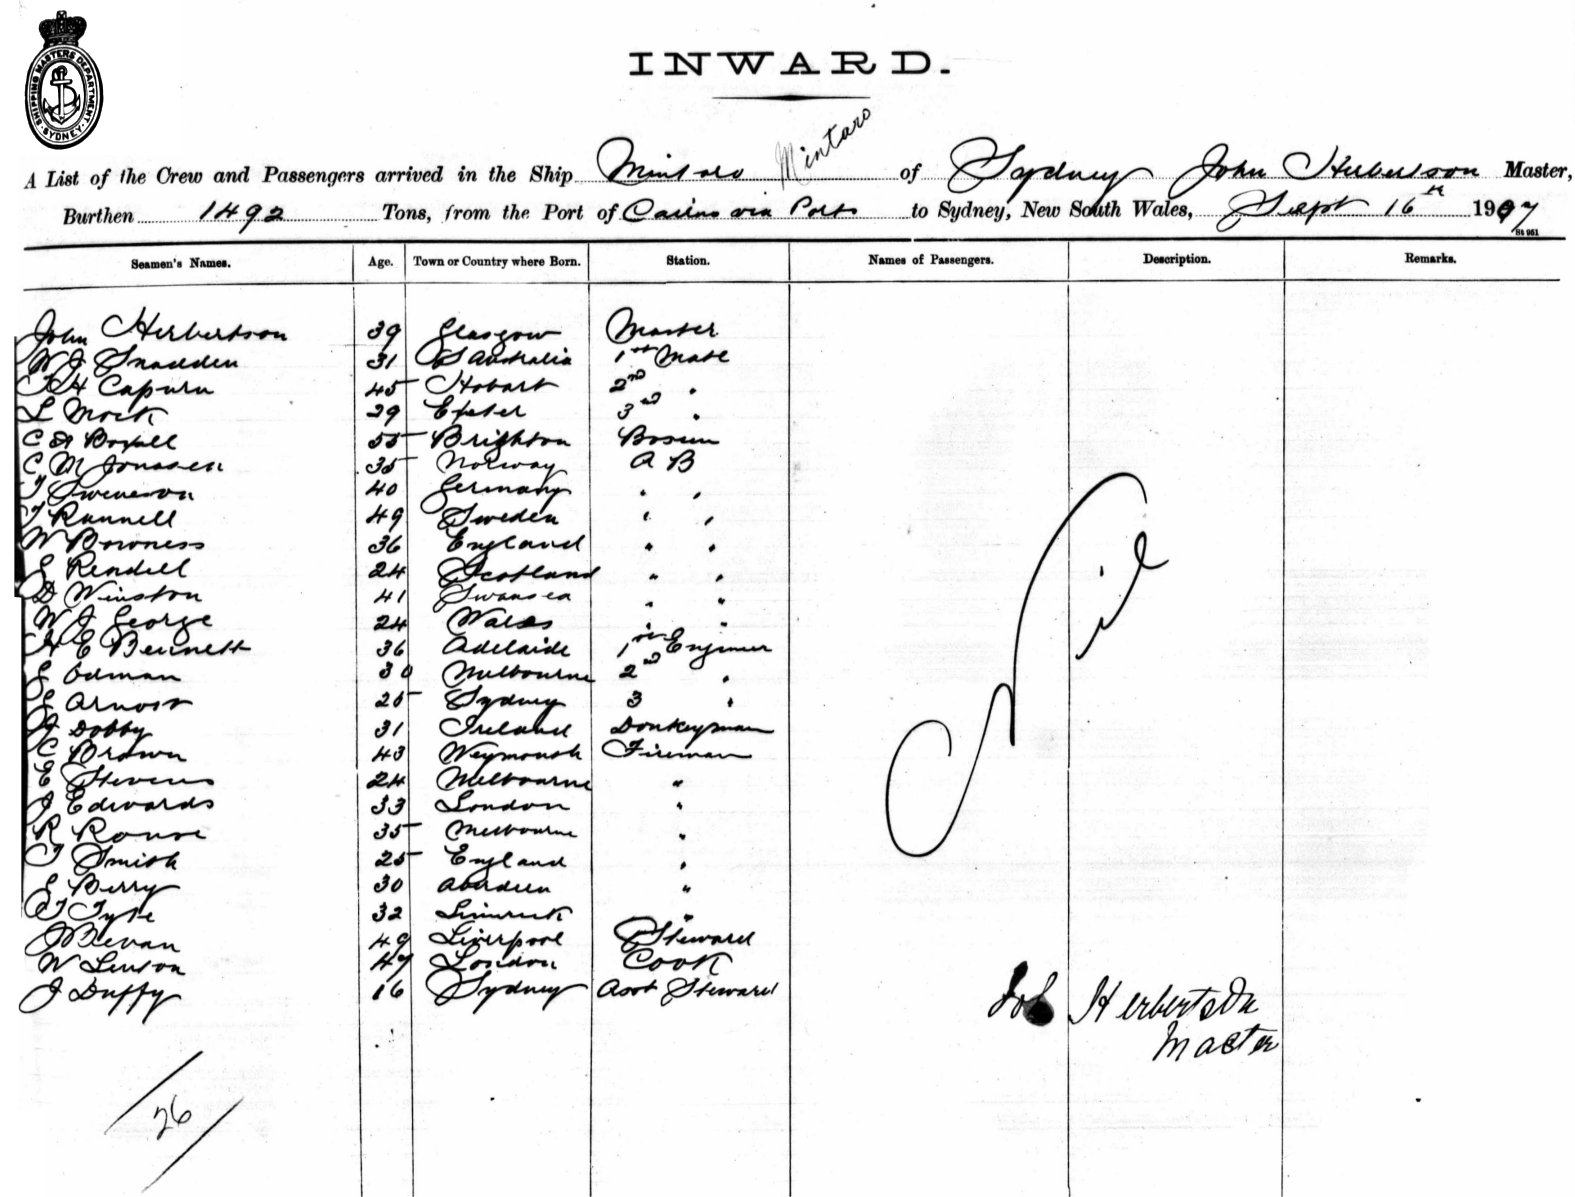 SHIPPING MASTERS DEPARTMENT. SYDNEY.
INWARD.
Mintaro
A List of the Crew and Passengers arrived in the Ship Mintaro of Sydney John Herbertson Master,
Burthen 1492 Tons, from the Port of Cairns via Ports to Sydney, New South Wales, Sept 16th 1907
St 961
Seamen's Names. Age. Town or Country where Born. Station. Names of Passengers. Description. Remarks.
John Herbertson 39 Glasgow Master
W J Snadden 31 S Australia 1st Mate
T H Capurn 45 Hobart 2nd "
L Mock 29 Exeter 3rd "
C A Boxall 55 Brighton Bosun
C M Jonassen 35 Norway A B
T Sweneson 40 Germany " "
T Rannell 49 Sweden " "
W Bowness 36 England " "
G Rendell 24 Scotland " "
D Winston 41 Swansea " "
W J George 24 Wales "
H E Bennett 36 Adelaide 1st Engineer
G Odman 30 Melbourne 2nd "
G Arnost 25 Sydney 3 "
J Dobby 31 Ireland Donkeyman
C Brown 43 Weymouth Fireman
E Stevens 24 Melbourne "
J Edwards 33 London "
R Rouse 35 Melbourne "
T Smith 25 England "
G Berry 30 Aberdeen "
T Tyte 32 Limerick "
J Bevan 49 Liverpool Steward
W Linton 47 London Cook
J Duffy 16 Sydney Asst Steward
Nil
Herbertson
Master
26